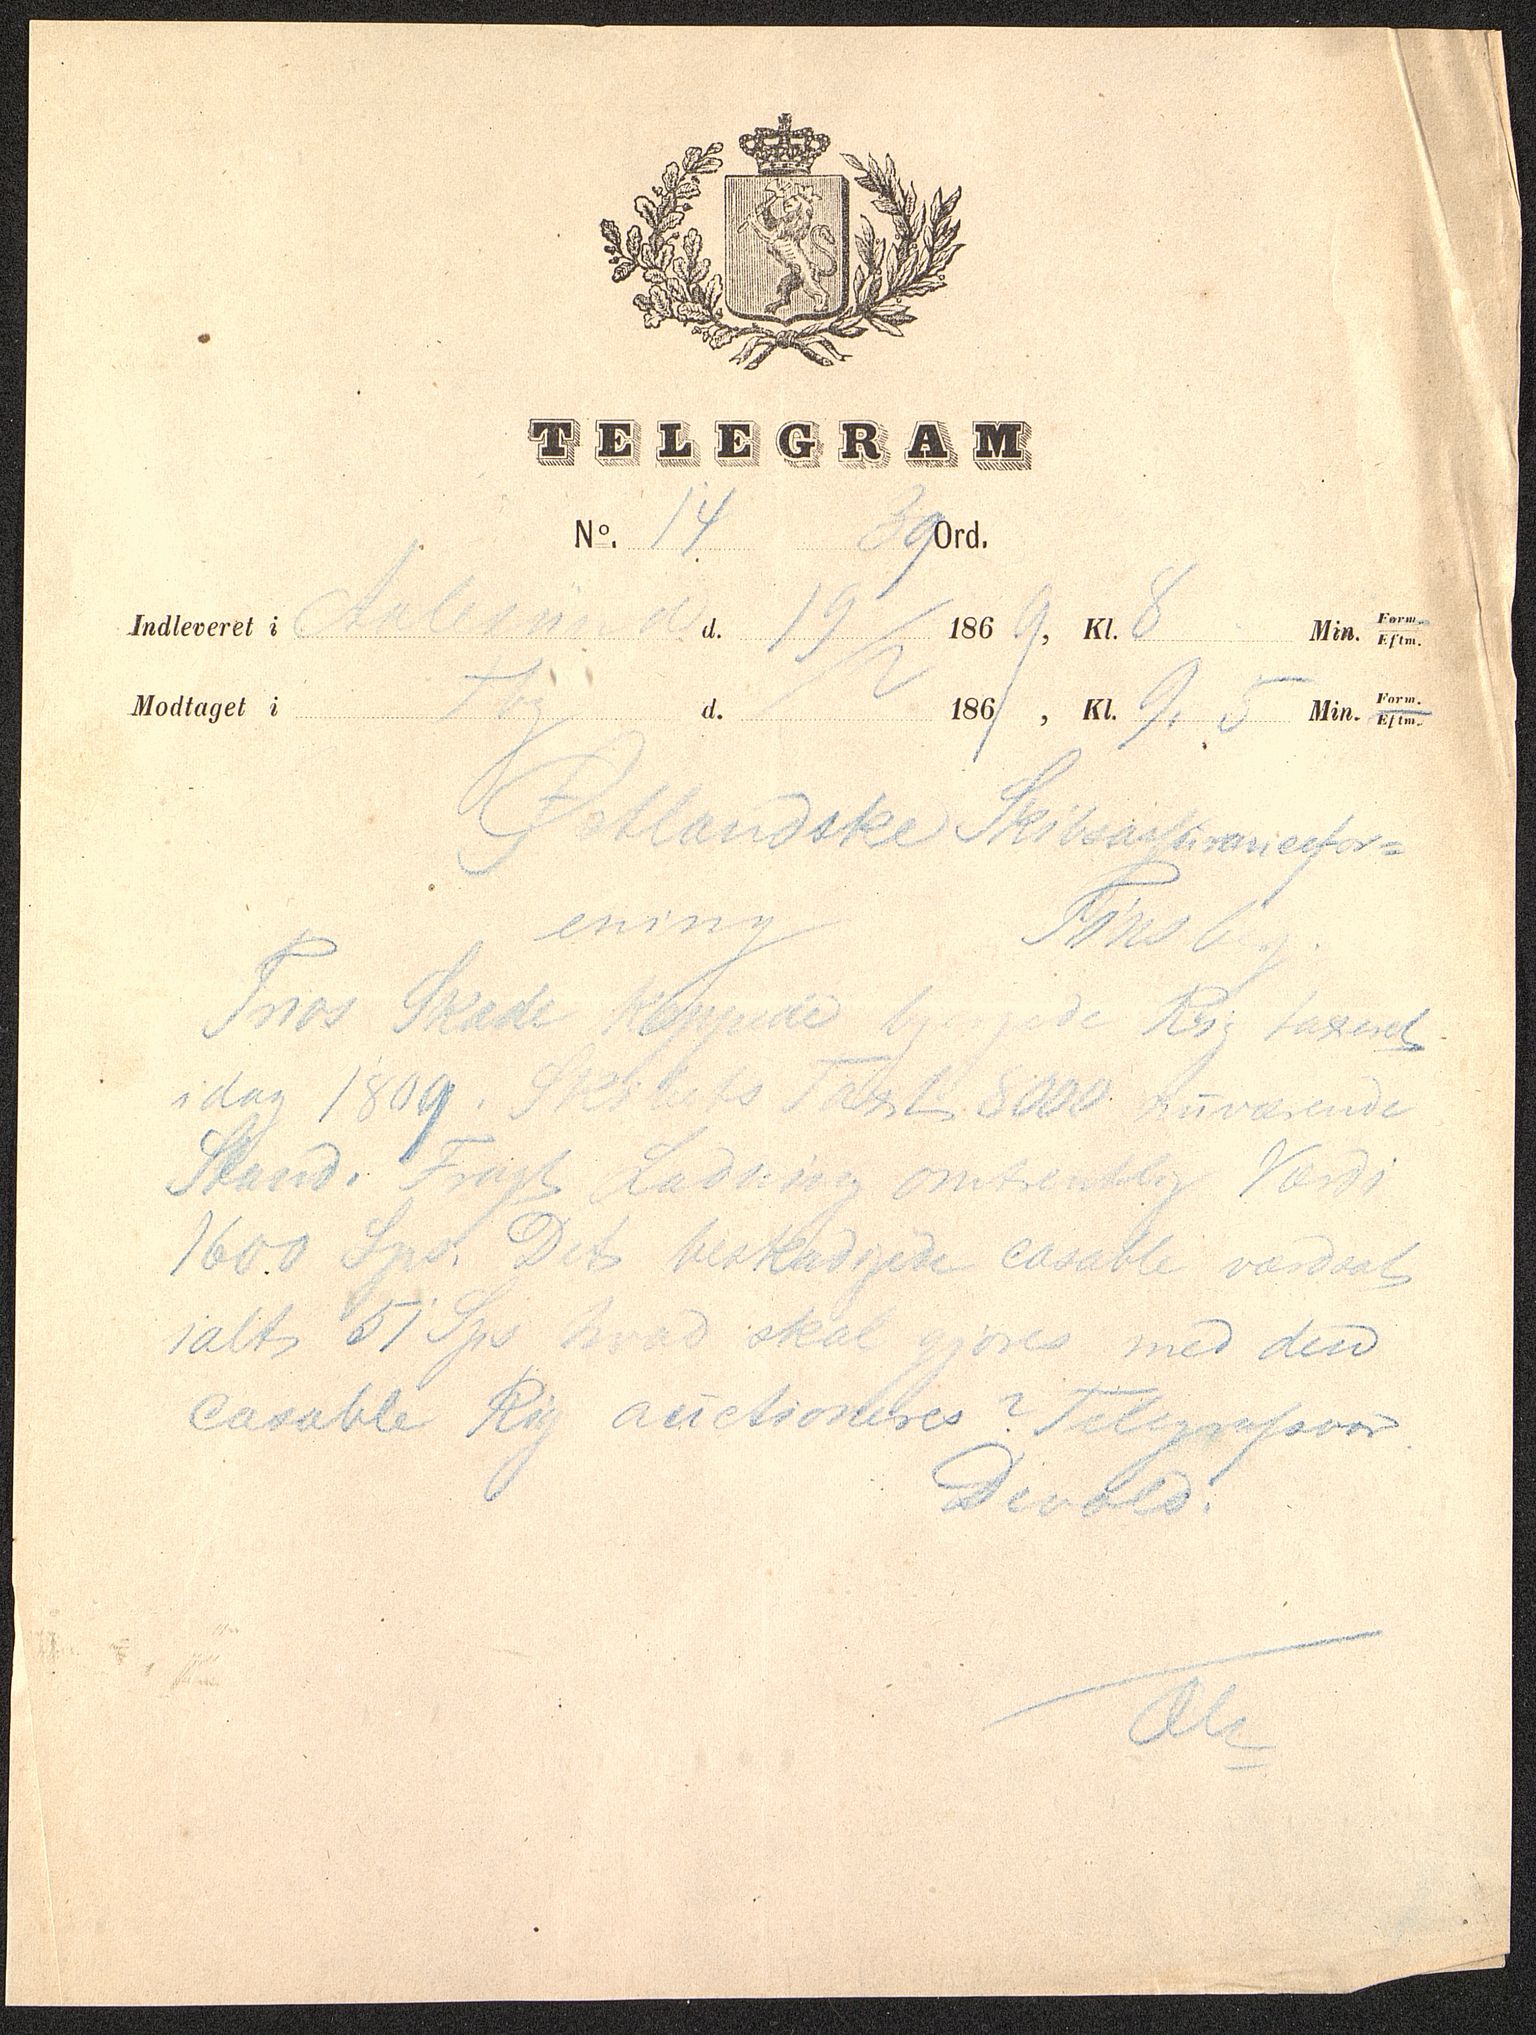 TELEGRAM
No. 14 39 Ord.
Indleveret i Aalesund d. 19/2 1869, Kl. 8 Min. Form. Eftm.
Modtaget i Tbg d. 186 , Kl. 9. 5 Min. Form. Eftm.
Østlandske Skibsassurancefor=
ening Tønsberg.
Trios Skade kappede bjergede Rig taxeret
idag 1809. Skrovets Taxt 8000 nuværende
Stand. Fragt Ladning omtrentlig Værdi
1600 Sps. Det beskadigede casable værdsat
ialt 51 Sps hvad skal gjøres med den
casable Rig auctioneres? Telegrafsvar
Devold.